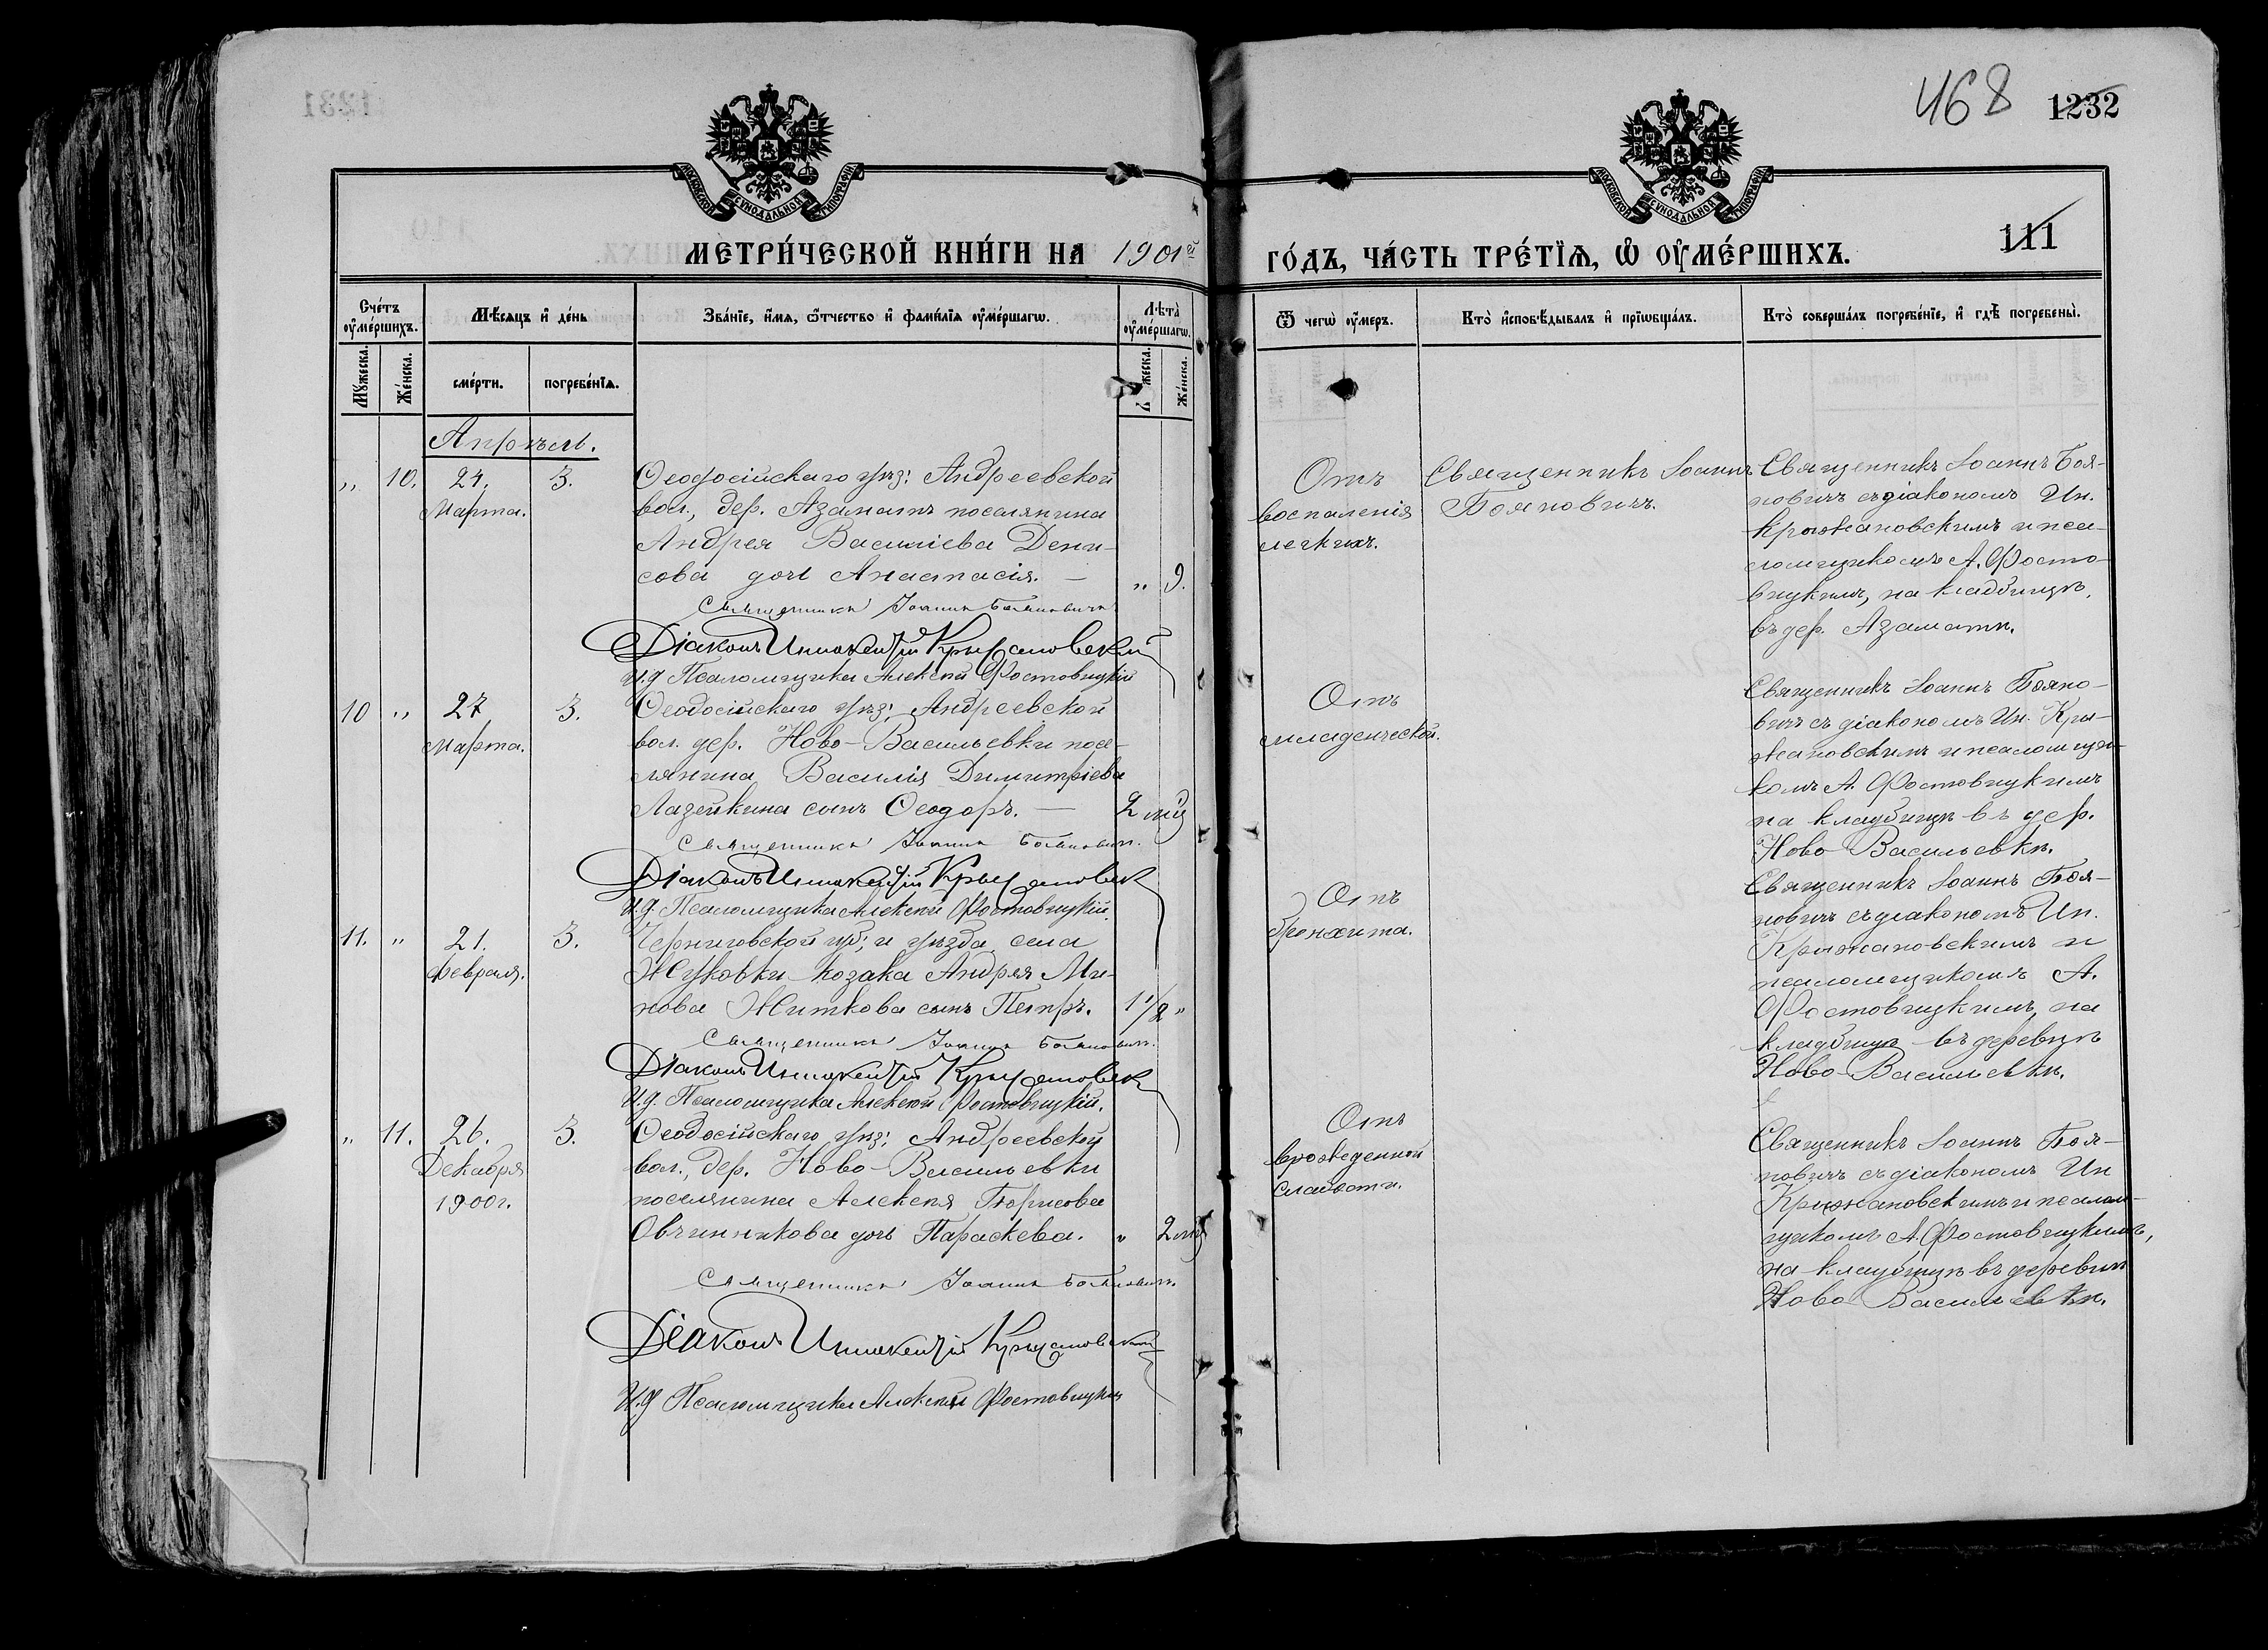 468 1232
МОСКОВСКОЙ СѴНОДАЛЬНОЙ ТИПОГРАФІИ
МОСКОВСКОЙ СѴНОДАЛЬНОЙ ТИПОГРАФІИ
111
МЕТРИ́ЧЕСКОЙ КНИ́ГИ НА 1901й ГО́ДЪ, ЧА́СТЬ ТРЕ́ТІѦ, Ѡ҆ ОУ҆МЕ́РШИХЪ.
Сче́тъ оу҆ме́ршихъ.
Мѣ́сѧцъ и҆ де́нь
Зва́нїе, и҆́мѧ, ѻ҆́тчество и҆ фами́лїѧ оу҆ме́ршагѡ.
Лѣта̀ оу҆ме́ршагѡ.
Ѿ чегѡ̀ оу҆́меръ.
Кто̀ и҆сповѣ́дывалъ и҆ прїѡбща́лъ.
Кто̀ соверша́лъ погребе́нїе, и҆ гдѣ̀ погребены̀.
Мꙋ́жеска.
Же́нска.
сме́рти.
погребе́нїѧ.
жеска.
Же́нска.
Апрѣль.
„ 10. 24. 3.
Марта.
Ѳеодосійскаго уѣз: Андреевской
вол., дер. Азаматъ поселянина
Андрея Василіева Дени-
сова дочь Анастасія. — „ 9.
Священникъ Іоаннъ Боянович
Діаконъ Иннокентій Крыжановскій
И.д. Псаломщика Алексѣй Фостовицкій
Отъ
воспаленія
легкихъ.
Священникъ Іоаннъ
Бояновичъ.
Священникъ Іоаннъ Боя-
новичъ съ діакономъ Ин.
Крыжановскимъ и пса-
ломщикомъ А. Фосто-
вицкимъ, на кладбищѣ,
въ дер. Азаматъ.
10 „ 27 3.
Марта.
Ѳеодосійскаго уѣз: Андреевской
вол. дер. Ново-Васильевки посе-
лянина Василія Димитріева
Лазейкина сынъ Ѳеодоръ. — 2 мѣ
Священникъ Іоаннъ Боянович.
Діаконъ Иннокентій Крыжановск
И.д. Псаломщика Алексѣй Фостовицкій.
Отъ
младенческой.
Священникъ Іоаннъ Бояно-
вичъ съ діакономъ Ин. Кры-
жановскимъ и псаломщи-
комъ А. Фостовицкимъ
на кладбищѣ въ дер.
Ново Васильевкѣ.
11. „ 21. 3.
Февраля.
Черниговской губ; и уѣзда села
Жуковки козака Андрея Ми-
нова Житкова сынъ Петръ. 1 1/2 „
Священникъ Іоаннъ Боянович.
Діаконъ Иннокентій Крыжановск
И.д. Псаломщика Алексѣй Фостовицкій.
Отъ
бронхита.
Священникъ Іоаннъ Боя-
новичъ съ діакономъ Ин.
Крыжановскимъ и
псаломщикомъ А.
Фостовицкимъ, на
кладбищѣ въ деревнѣ
Ново-Васильевкѣ.
„ 11. 26. 3.
Декабря
1900 г.
Ѳеодосійскаго уѣз: Андреевской
вол., дер. Ново-Васильевки
поселянина Алексѣя Борисова
Овчинникова дочь Параскева. „ 2 мѣ
Священникъ Іоаннъ Боянович.
Діаконъ Иннокентій Крыжановскій
И.д Псаломщика Алексѣй Фостовицкій
Отъ
врожденной
слабости.
Священникъ Іоаннъ Боя-
новичъ съ діакономъ Ин
Крыжановскимъ и псалом-
щикомъ А. Фостовицкимъ,
на кладбищѣ въ деревнѣ
Ново Васильевкѣ.